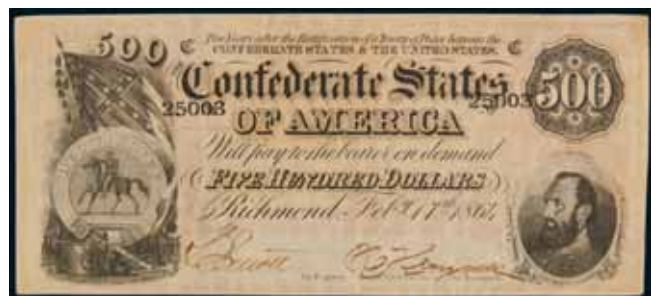 500 C Two Years after the Ratification of a Treaty of Peace between the C
CONFEDERATE STATES & THE UNITED STATES.
Confederate States 500
25003 25003
OF AMERICA
Will pay to the bearer on demand
FIVE HUNDRED DOLLARS
Richmond Feb. 17th 1864